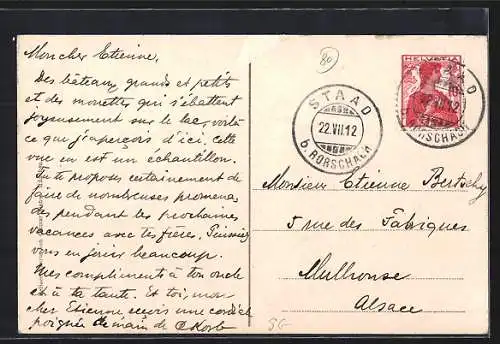 Mon cher Etienne,
Des bateaux grands et petits
et des mouettes qui s'ébattent
joyeusement sur le lac, voilà
ce que j'aperçois d'ici, cette
vue en est un échantillon.
Tu te proposes certainement de
faire de nombreuses promena
des pendant les prochaines
vacances avec tes frères. Puissiez
vous en jouir beaucoup.
Mes compliments à ton oncle
et à ta tante. Et toi, mon
cher Etienne, reçois une cordiale
poignée de main de
80
STAAD
22.VII.12
b. RORSCHACH
HELVETIA
STAAD
22.VII.12
RORSCHACH
Monsieur Etienne Bertschy
5 rue des Fabriques
Mulhouse
Alsace
SG